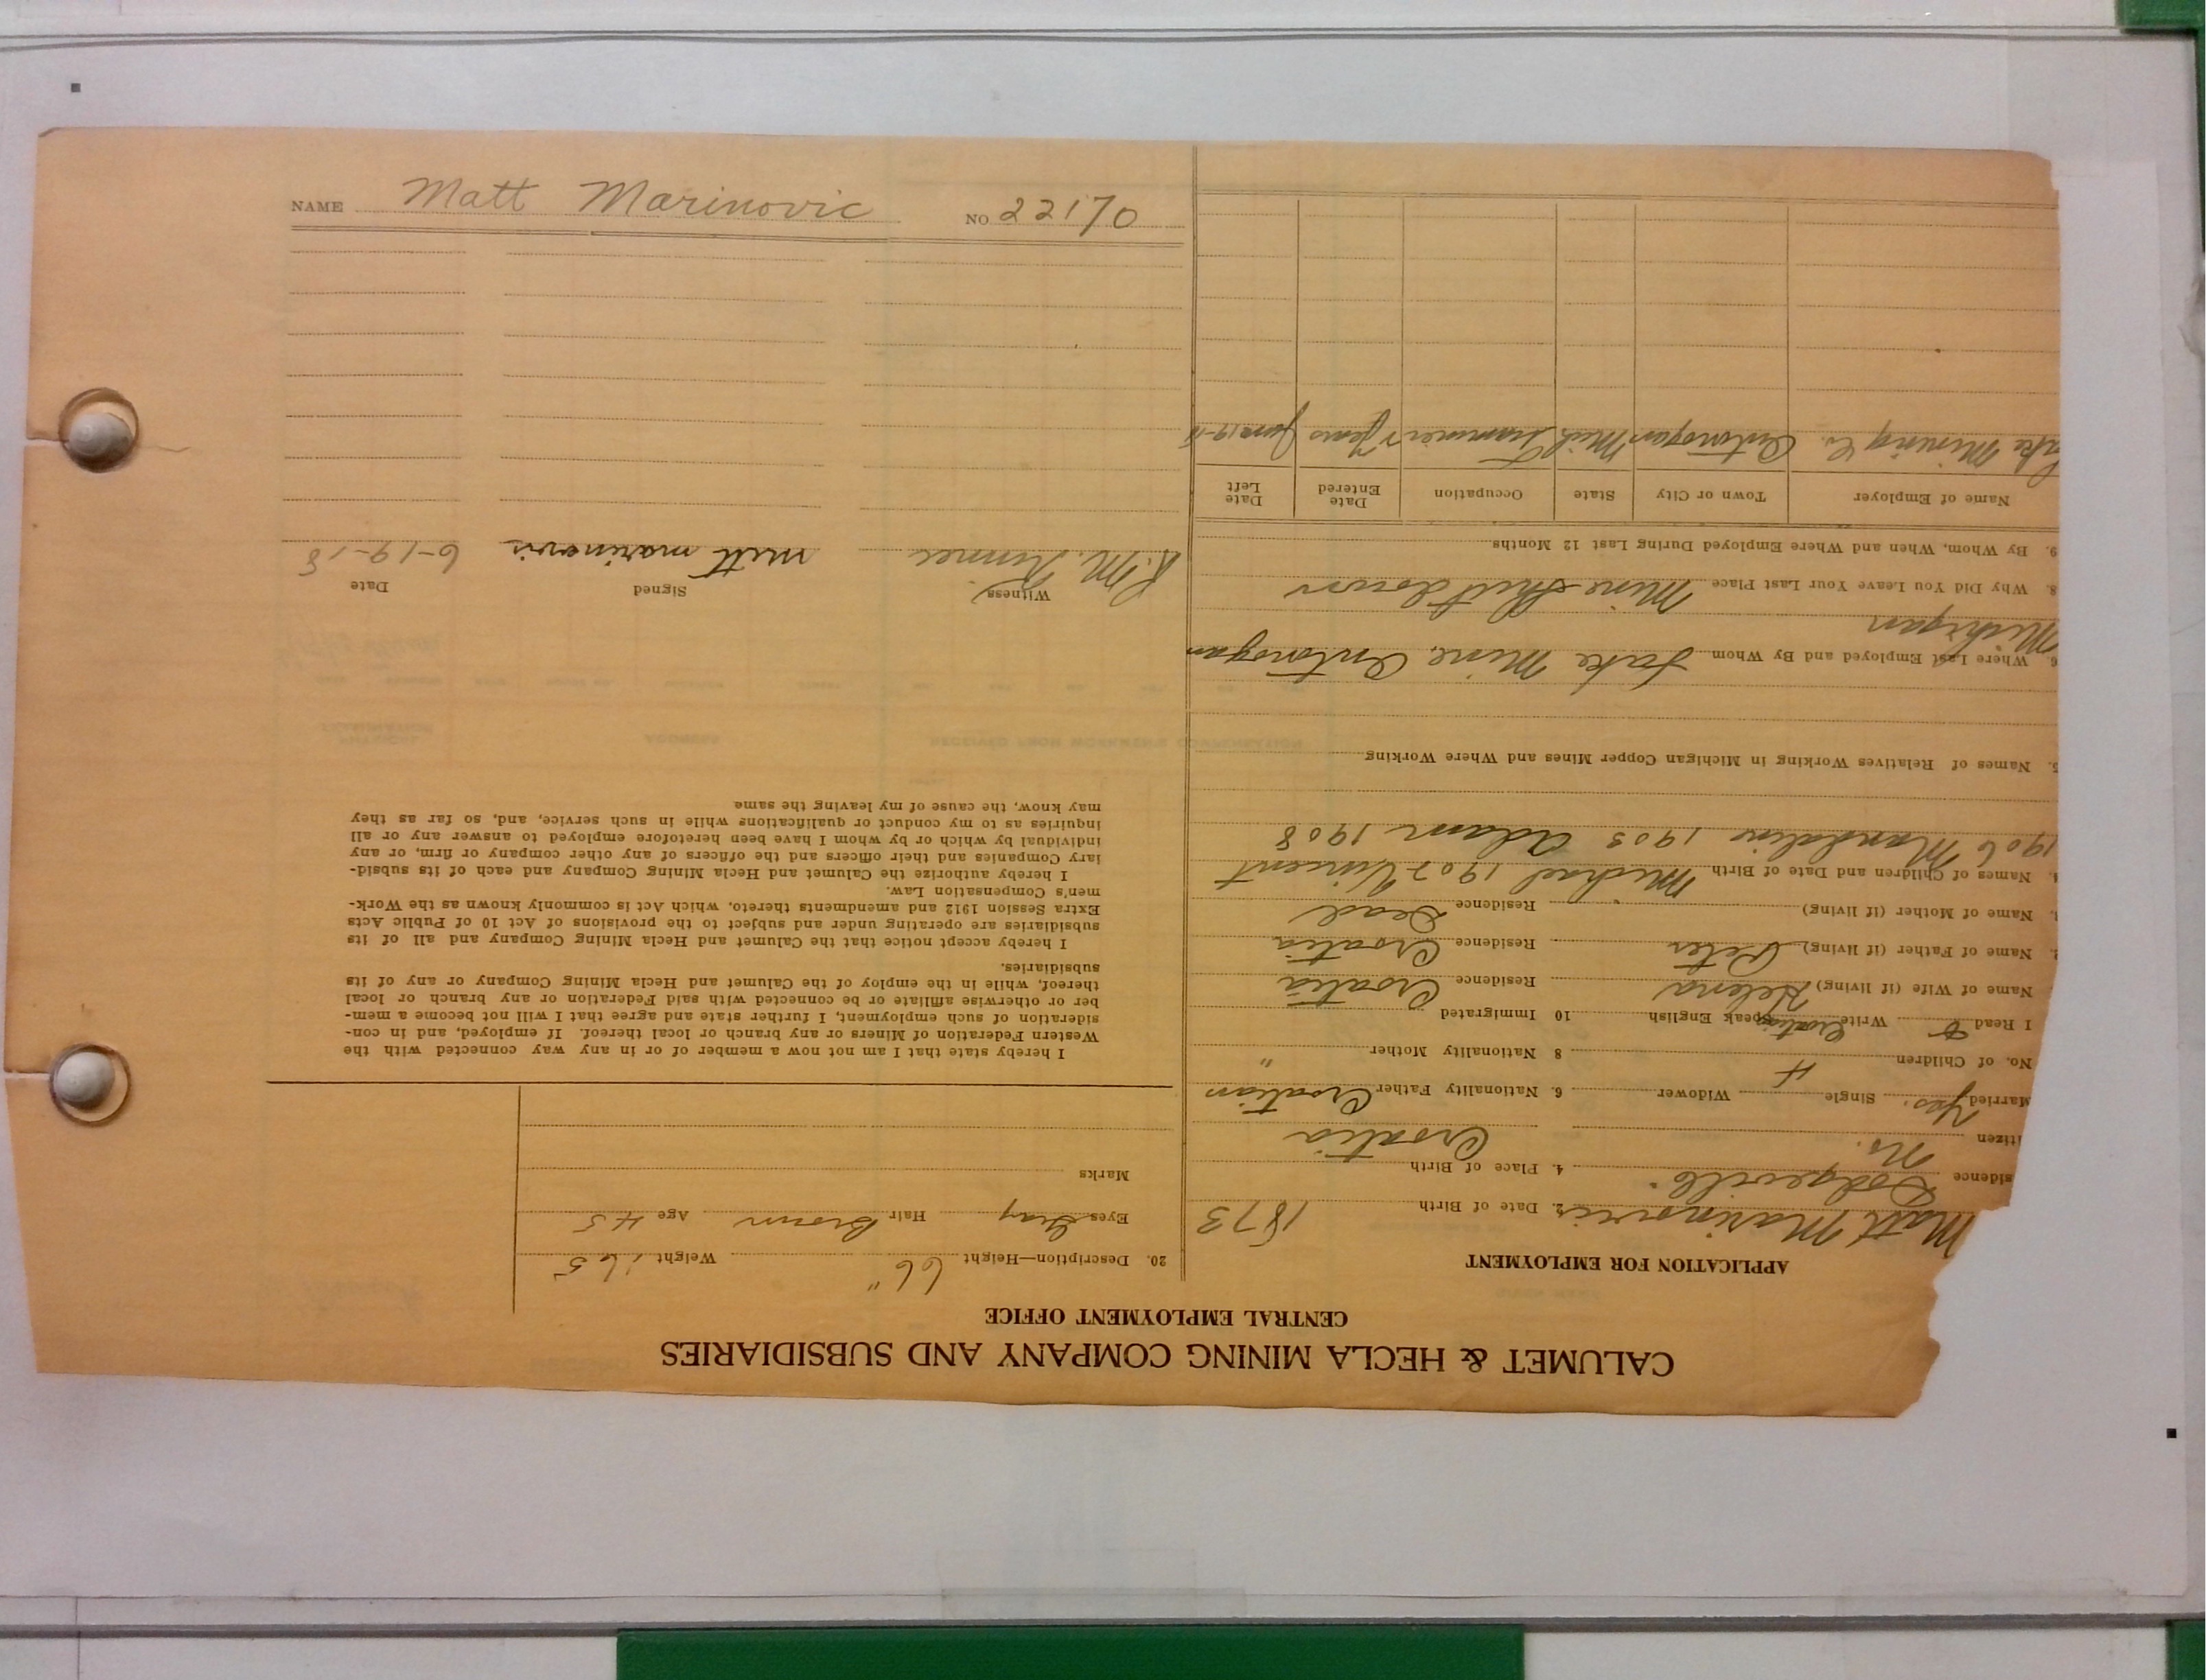 CALUMET & HECLA MINING COMPANY AND SUBSIDIARIES
CENTRAL EMPLOYMENT OFFICE
APPLICATION FOR EMPLOYMENT
Matt Marinovic 2. Date of Birth 1873
sidence Dodgeville 4. Place of Birth Croatia
itizen No.
Married Yes. Single Widower 6. Nationality Father Croatian
No. of Children 4 8 Nationality Mother "
I Read Write Croatian Speak English 10 Immigrated
Name of Wife (if living) Helena Residence Croatia
Name of Father (if living) Peter Residence Croatia
Name of Mother (if living) Residence Dead
4. Names of Children and Date of Birth Michael 1902 Vincent
1906 Mandaline 1903 Adam 1908
5. Names of Relatives Working in Michigan Copper Mines and Where Working
6. Where Last Employed and By Whom Lake Mine, Ontonogan
Michigan
8. Why Did You Leave Your Last Place Mine Shut down
9. By Whom, When and Where Employed During Last 12 Months
Name of Employer Town or City State Occupation Date Entered Date Left
Lake Mining Co. Ontonogan Mich Trammer 7 Years June 19-18
20. Description—Height 66" Weight 165
Eyes Gray Hair Brown Age 45
Marks
I hereby state that I am not now a member of or in any way connected with the
Western Federation of Miners or any branch or local thereof. If employed, and in con-
sideration of such employment, I further state and agree that I will not become a mem-
ber or otherwise affiliate or be connected with said Federation or any branch or local
thereof, while in the employ of the Calumet and Hecla Mining Company or any of its
subsidiaries.
I hereby accept notice that the Calumet and Hecla Mining Company and all of its
subsidiaries are operating under and subject to the provisions of Act 10 of Public Acts
Extra Session 1912 and amendments thereto, which Act is commonly known as the Work-
men's Compensation Law.
I hereby authorize the Calumet and Hecla Mining Company and each of its subsid-
iary Companies and their officers and the officers of any other company or firm, or any
individual by which or by whom I have been heretofore employed to answer any or all
inquiries as to my conduct or qualifications while in such service, and, so far as they
may know, the cause of my leaving the same
Witness Signed Date
R. M. matt marinovic 6-19-18
NAME Matt Marinovic NO 22170